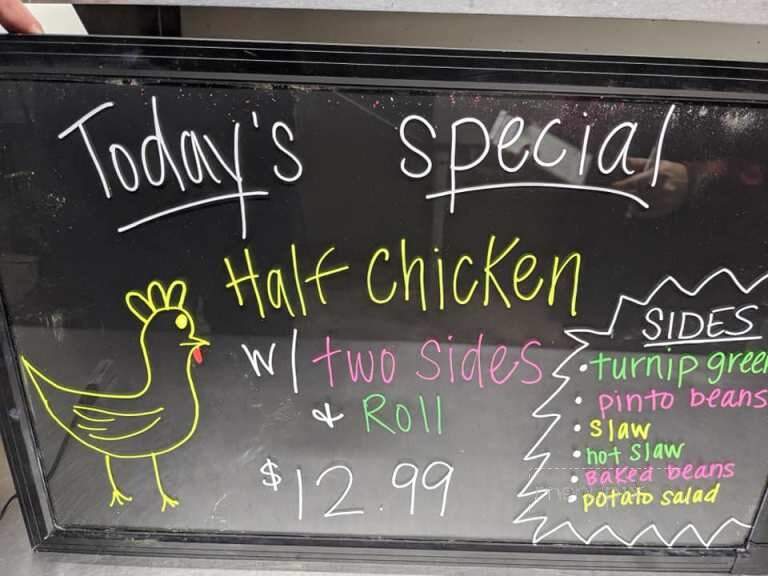 Today's special
Half Chicken
w/ two sides
& Roll
$12.99
SIDES
• turnip green
• pinto beans
• slaw
• hot slaw
• Baked beans
• potato salad